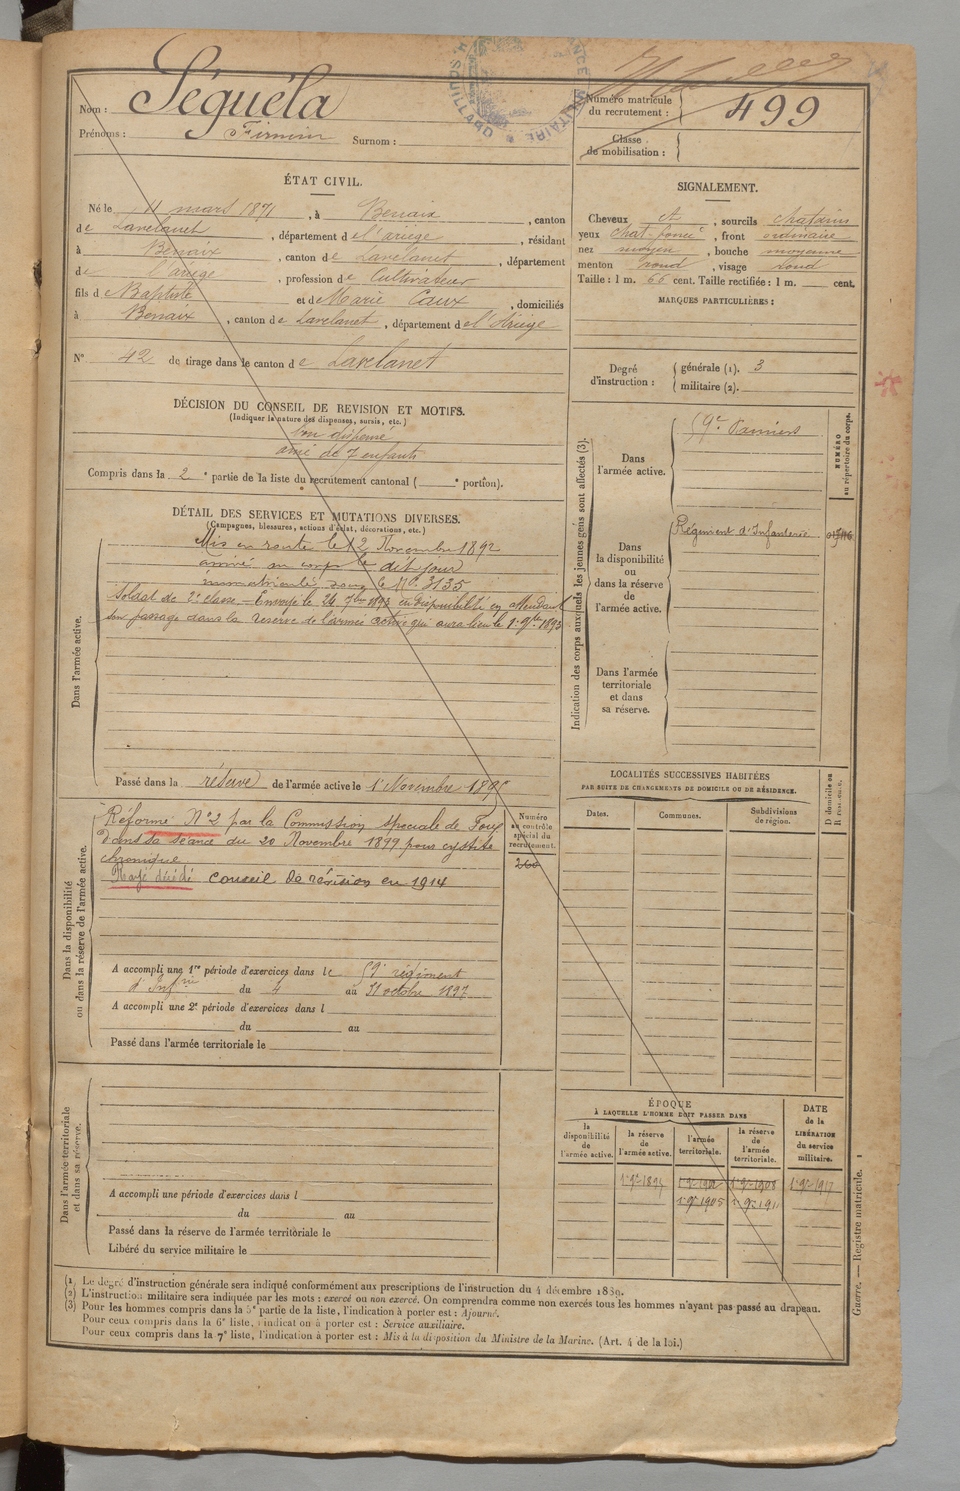 Nom : Séguéla
Prénoms : Firmin Surnom :
Numéro matricule du recrutement : 499
Classe de mobilisation :
ÉTAT CIVIL.
Né le 11 mars 1871, à Benaix, canton
de Lavelanet, département de l'ariège, résidant
à Benaix, canton de Lavelanet, département
de l'ariège, profession de Cultivateur
fils de Baptiste et de Marie Caux, domiciliés
à Benaix, canton de Lavelanet, département de l'Ariège
N° 42 de tirage dans le canton de Lavelanet
SIGNALEMENT.
Cheveux et, sourcils chatains
yeux chat. foncé, front ordinaire
nez moyen, bouche moyenne
menton rond, visage rond
Taille : 1 m. 66 cent. Taille rectifiée : 1 m. cent.
MARQUES PARTICULIÈRES :
Degré d'instruction : générale (1). 3
militaire (2).
DÉCISION DU CONSEIL DE REVISION ET MOTIFS.
(Indiquer la nature des dispenses, sursis, etc.)
bon dispensé
ainé de 7 enfants
Compris dans la 2e partie de la liste du recrutement cantonal ( e portion).
DÉTAIL DES SERVICES ET MUTATIONS DIVERSES.
(Campagnes, blessures, actions d'éclat, décorations, etc.)
Dans l'armée active.
Mis en route le 12 Novembre 1892
arrivé au corps le dit jour
immatriculé sous le N° 3135
Soldat de 2e classe – Envoyé le 24 7bre 1893 en disponibilité en attendant
son passage dans la réserve de l'armée active qui aura lieu le 1er 9bre 1895
Passé dans la réserve de l'armée active le 1er Novembre 1895
Indication des corps auxquels les jeunes gens sont affectés (3).
NUMÉRO au répertoire du corps.
Dans l'armée active.
59e Pamiers
Dans la disponibilité ou dans la réserve de l'armée active.
Régiment d'Infanterie
Dans l'armée territoriale et dans sa réserve.
Dans la disponibilité ou dans la réserve de l'armée active.
Réformé N° 2 par la Commission spéciale de Foix
Dans sa séance du 20 Novembre 1899 pour cystite
chronique
Rayé décédé Conseil de révision en 1914
Numéro au contrôle spécial du recrutement.
260
A accompli une 1re période d'exercices dans le 59e régiment
d'Infrie du 4 au 31 octobre 1897
A accompli une 2e période d'exercices dans l
du au
Passé dans l'armée territoriale le
LOCALITÉS SUCCESSIVES HABITÉES
PAR SUITE DE CHANGEMENTS DE DOMICILE OU DE RÉSIDENCE.
Dates. Communes. Subdivisions de région. D domicile ou R résidence.
Dans l'armée territoriale et dans sa réserve.
A accompli une période d'exercices dans l
du au
Passé dans la réserve de l'armée territoriale le
Libéré du service militaire le
ÉPOQUE
À LAQUELLE L'HOMME DOIT PASSER DANS
la disponibilité de l'armée active.
la réserve de l'armée active.
l'armée territoriale.
la réserve de l'armée territoriale.
DATE de la LIBÉRATION du service militaire.
1er 9bre 1895 1er 9bre 1908 1er 9bre 1917
1er 9bre 1905 1er 9bre 1911
(1) Le degré d'instruction générale sera indiqué conformément aux prescriptions de l'instruction du 4 décembre 1889.
(2) L'instruction militaire sera indiquée par les mots : exercé ou non exercé. On comprendra comme non exercés tous les hommes n'ayant pas passé au drapeau.
(3) Pour les hommes compris dans la 5e partie de la liste, l'indication à porter est : Ajourné.
Pour ceux compris dans la 6e liste, l'indication à porter est : Service auxiliaire.
Pour ceux compris dans la 7e liste, l'indication à porter est : Mis à la disposition du Ministre de la Marine. (Art. 4 de la loi.)
Guerre. — Registre matricule. 1